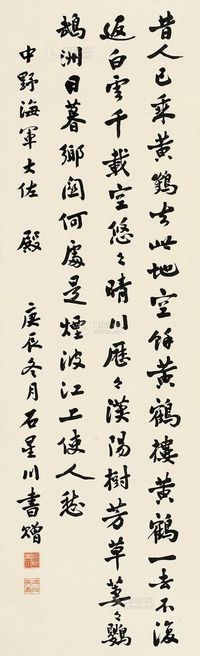 昔人已乘黄鶴去此地空餘黄鶴樓黄鶴一去不復
返白雲千載空悠々晴川歷々漢陽樹芳草萋々鸚
鵡洲日暮鄉關何處是煙波江上使人愁
中野海軍大佐 殿 庚辰冬月石星川書贈